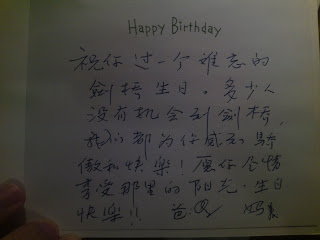 Happy Birthday
祝你过一个难忘的
劍桥生日。多少人
没有机会到劍桥，
我们都为你感到骄
傲和快樂！愿你尽情
享受那里的阳光。生日
快樂！！ 爸 妈